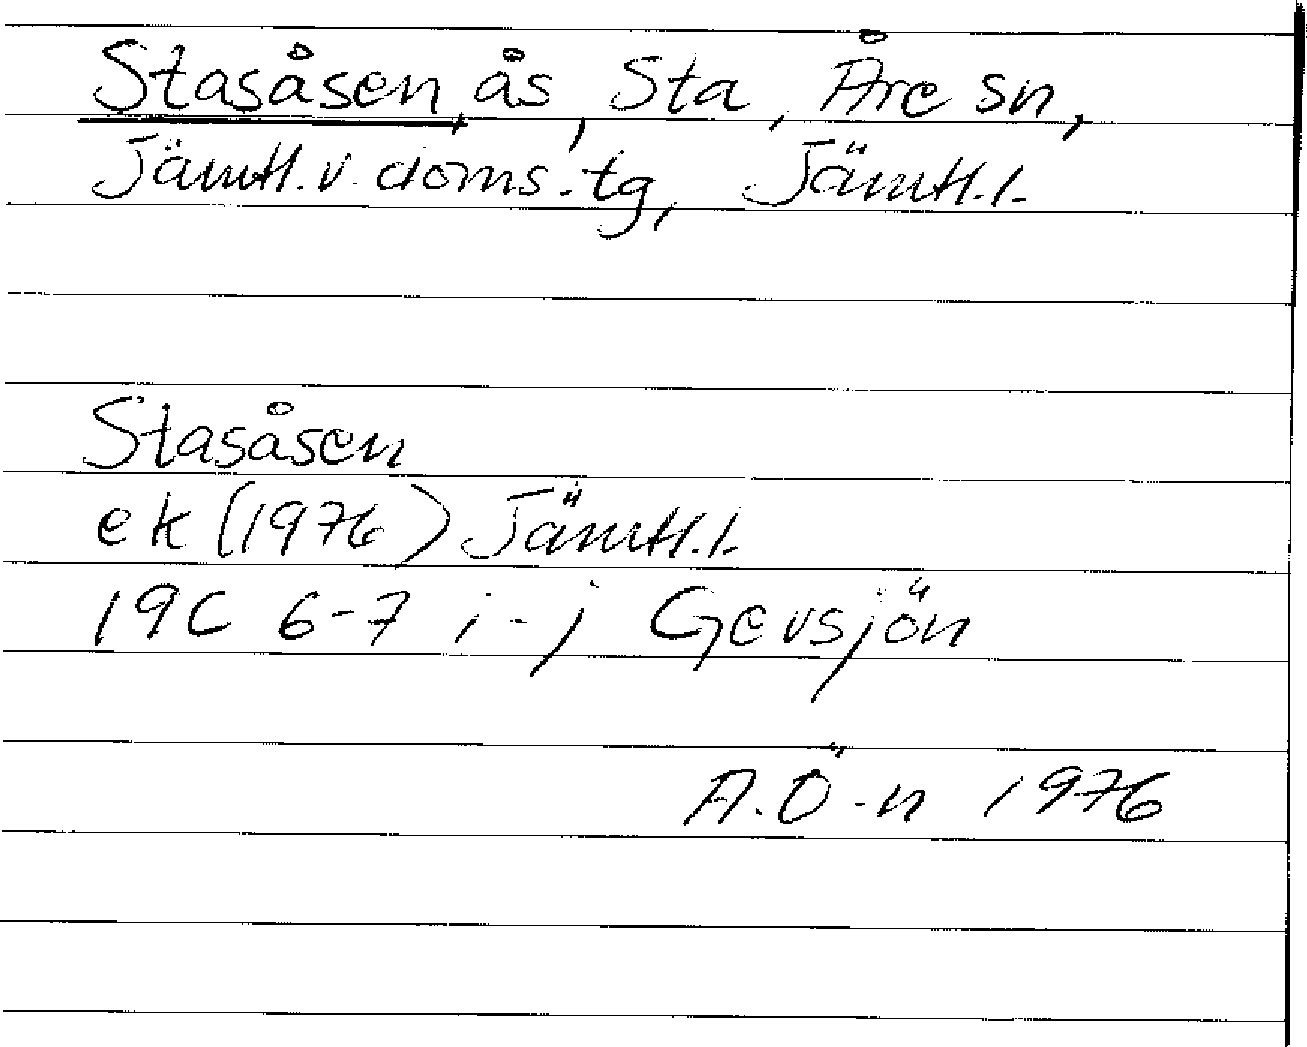 Stasåsen, ås, Sta, Åre sn,
Jämtl. v. doms. tg, Jämtl. l.
Stasåsen
ek (1976) Jämtl. l.
19C 6-7 i-j Gevsjön
A.Ö-n 1976